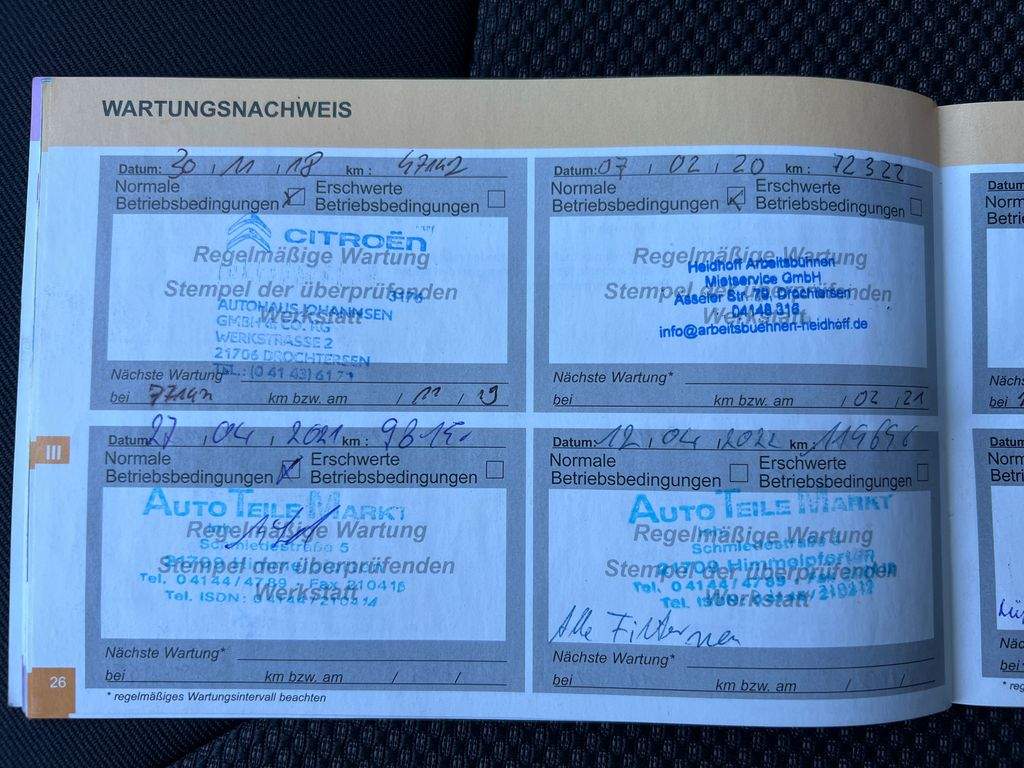 WARTUNGSNACHWEIS
Datum: 30 . 11 . 18 km : 47142
Normale
Betriebsbedingungen
Erschwerte
Betriebsbedingungen
CITROËN
Regelmäßige Wartung
Stempel der überprüfenden
Werkstatt
3176
AUTOHAUS JOHANNSEN
GMBH & CO. KG
WERKSTRASSE 2
21706 DROCHTERSEN
TEL.: (0 41 43) 61 71
Nächste Wartung*
bei 77142 km bzw. am / 11 / 19
Datum: 07 . 02 . 20 km : 72322
Normale
Betriebsbedingungen
Erschwerte
Betriebsbedingungen
Regelmäßige Wartung
Stempel der überprüfenden
Werkstatt
Heidhoff Arbeitsbühnen
Mietservice GmbH
Asseler Str. 79, Drochtersen
04148 316
info@arbeitsbuehnen-heidhoff.de
Nächste Wartung*
bei km bzw. am / 02 / 21
Datum: 27 . 04 . 2021 km : 9815,-
Normale
Betriebsbedingungen
Erschwerte
Betriebsbedingungen
AUTO TEILE MARKT
Regelmäßige Wartung
Stempel der überprüfenden
Werkstatt
Schmiedestraße 5
21709 Himmelpforten
Tel. 0 41 44 / 47 89 - Fax 210416
Tel. ISDN: 0 41 44 / 210414
Nächste Wartung*
bei km bzw. am / /
Datum: 12 . 04 . 2022 km : 119696
Normale
Betriebsbedingungen
Erschwerte
Betriebsbedingungen
AUTO TEILE MARKT
Regelmäßige Wartung
Stempel der überprüfenden
Werkstatt
Schmiedestraße 5
21709 Himmelpforten
Tel. 0 41 44 / 47 89
Tel. ISDN:
Alle Filter neu
Nächste Wartung*
bei km bzw. am / /
* regelmäßiges Wartungsintervall beachten
III
26